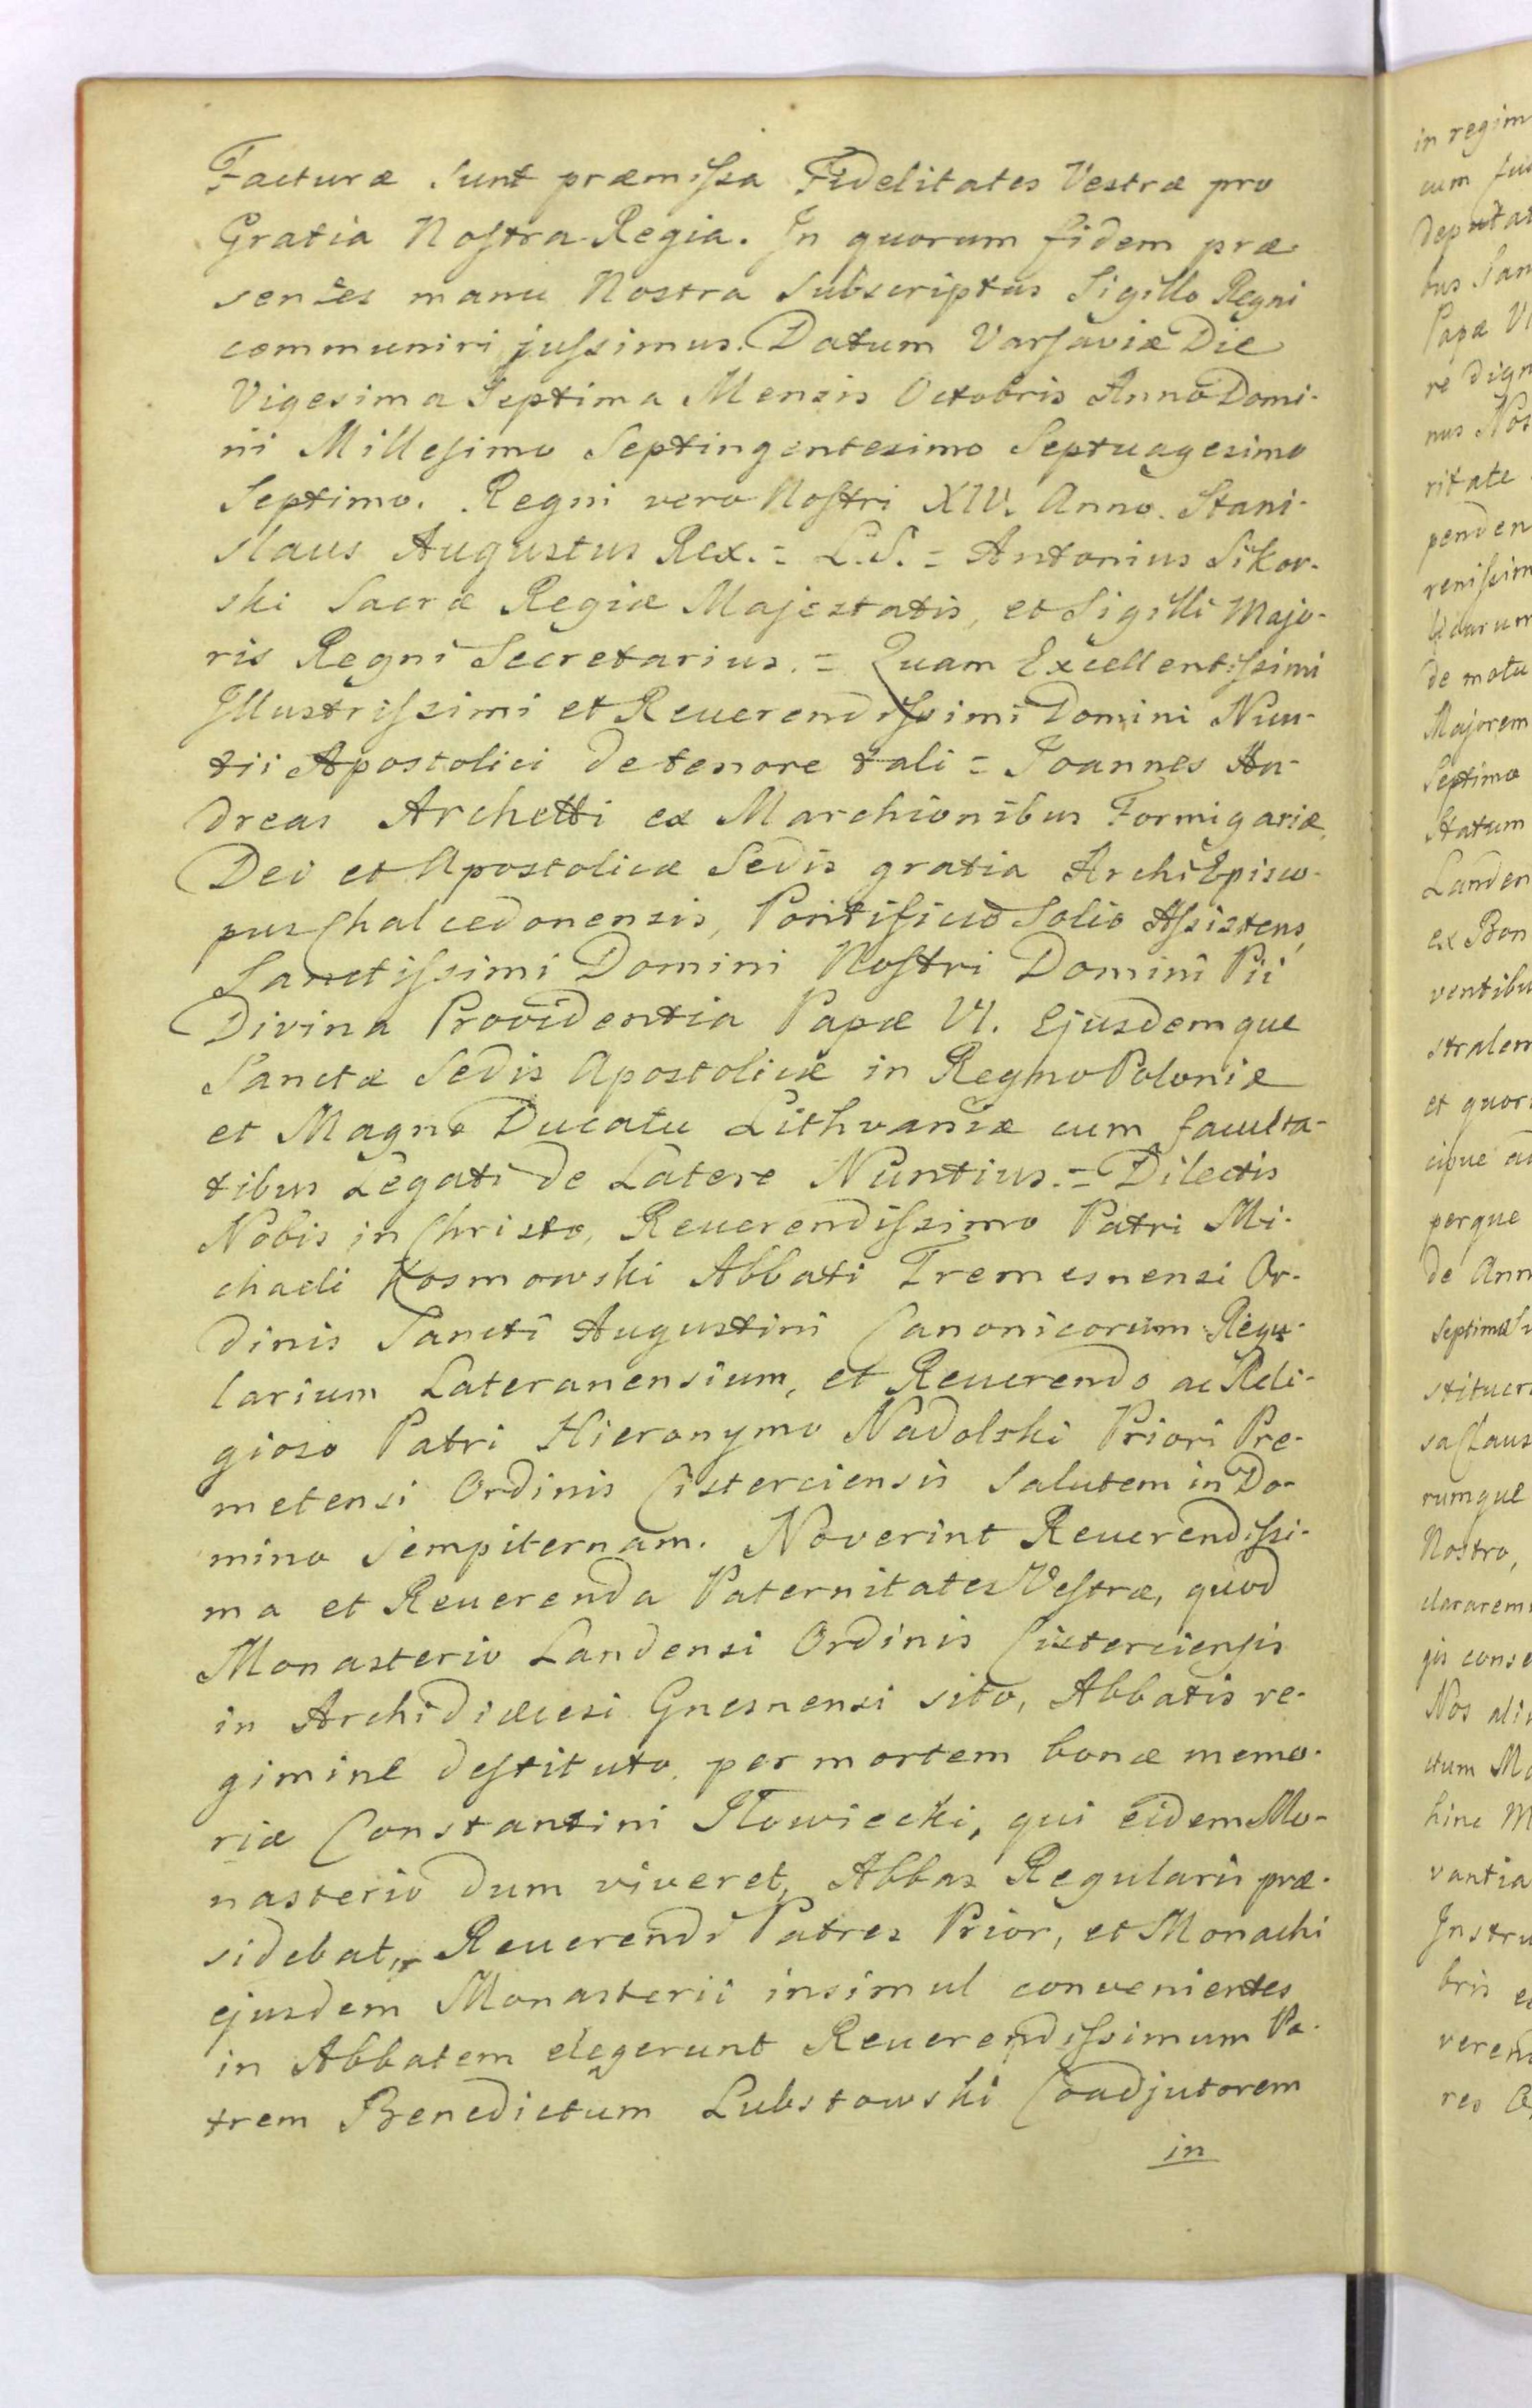 Facturæ sunt præmissa Fidelitates Vestræ pro
Gratia Nostra Regia. In quorum fidem præ
sentes manu Nostra Subscriptas Sigillo Regni
communiri jussimus. Datum Varsaviæ Die
Vigesima Septima Mensis Octobris Anno Domi-
ni Millesimo Septingentesimo Septuagesimo
Septimo. Regni vero Nostri XIV. Anno. Stani-
slaus Augustus Rex. = L.S. = Antonius Sikor-
ski Sacræ Regiæ Majestatis, et Sigilli Majo-
ris Regni Secretarius. = Quam Excellentissimi
Illustrissimi et Reverendissimi Domini Nun-
tii Apostolici de tenore tali = Joannes An-
dreas Archetti ex Marchionibus Formigariæ,
Dei et Apostolicæ Sedis gratia ArchiEpisco-
pus Chalcedonensis, Pontificio Solio Assistens,
Sanctissimi Domini Nostri Domini Pii
Divina Providentia Papæ VI. Ejusdemque
Sanctæ Sedis Apostolicæ in Regno Poloniæ
et Magno Ducatu Lithvaniæ cum faculta-
tibus Legati de Latere Nuntius. = Dilectis
Nobis in Christo, Reverendissimo Patri Mi-
chaeli Kosmowski Abbati Tremesnensi Or-
dinis Sancti Augustini Canonicorum Regu-
larium Lateranensium, et Reverendo ac Reli-
gioso Patri Hieronymo Nadolski Priori Pre-
metensi Ordinis Cisterciensis Salutem in Do-
mino sempiternam. Noverint Reverendissi-
ma et Reverenda Paternitates Vestræ, quod
Monasterio Landensi Ordinis Cisterciensis
in Archidiæcesi Gnesnensi sito, Abbatis re-
gimine destituto, per mortem bonæ memo-
riæ Constantini Iłowiecki, qui eidem Mo-
nasterio dum viveret, Abbas Regularis præ-
sidebat, Reverendi Patres Prior, et Monachi
ejusdem Monasterii insimul convenientes
in Abbatem elegerunt Reverendissimum Pa-
trem Benedictum Lubstowski Coadjutorem
in
in regim
cum
deputat
bus San
Papæ V
re dign
nus Nos
ritate
penden
renissim
de motu
Majorem
Septima
Statum
Landen
ex Bon
ventibu
stralem
et quor
cipue
perque
de Ann
Septima
stituer
sa Claus
rumque
Nostro,
clararem
gis conse
Nos ali
ctum M
hinc M
vantia
Instru
bris e
veren
res